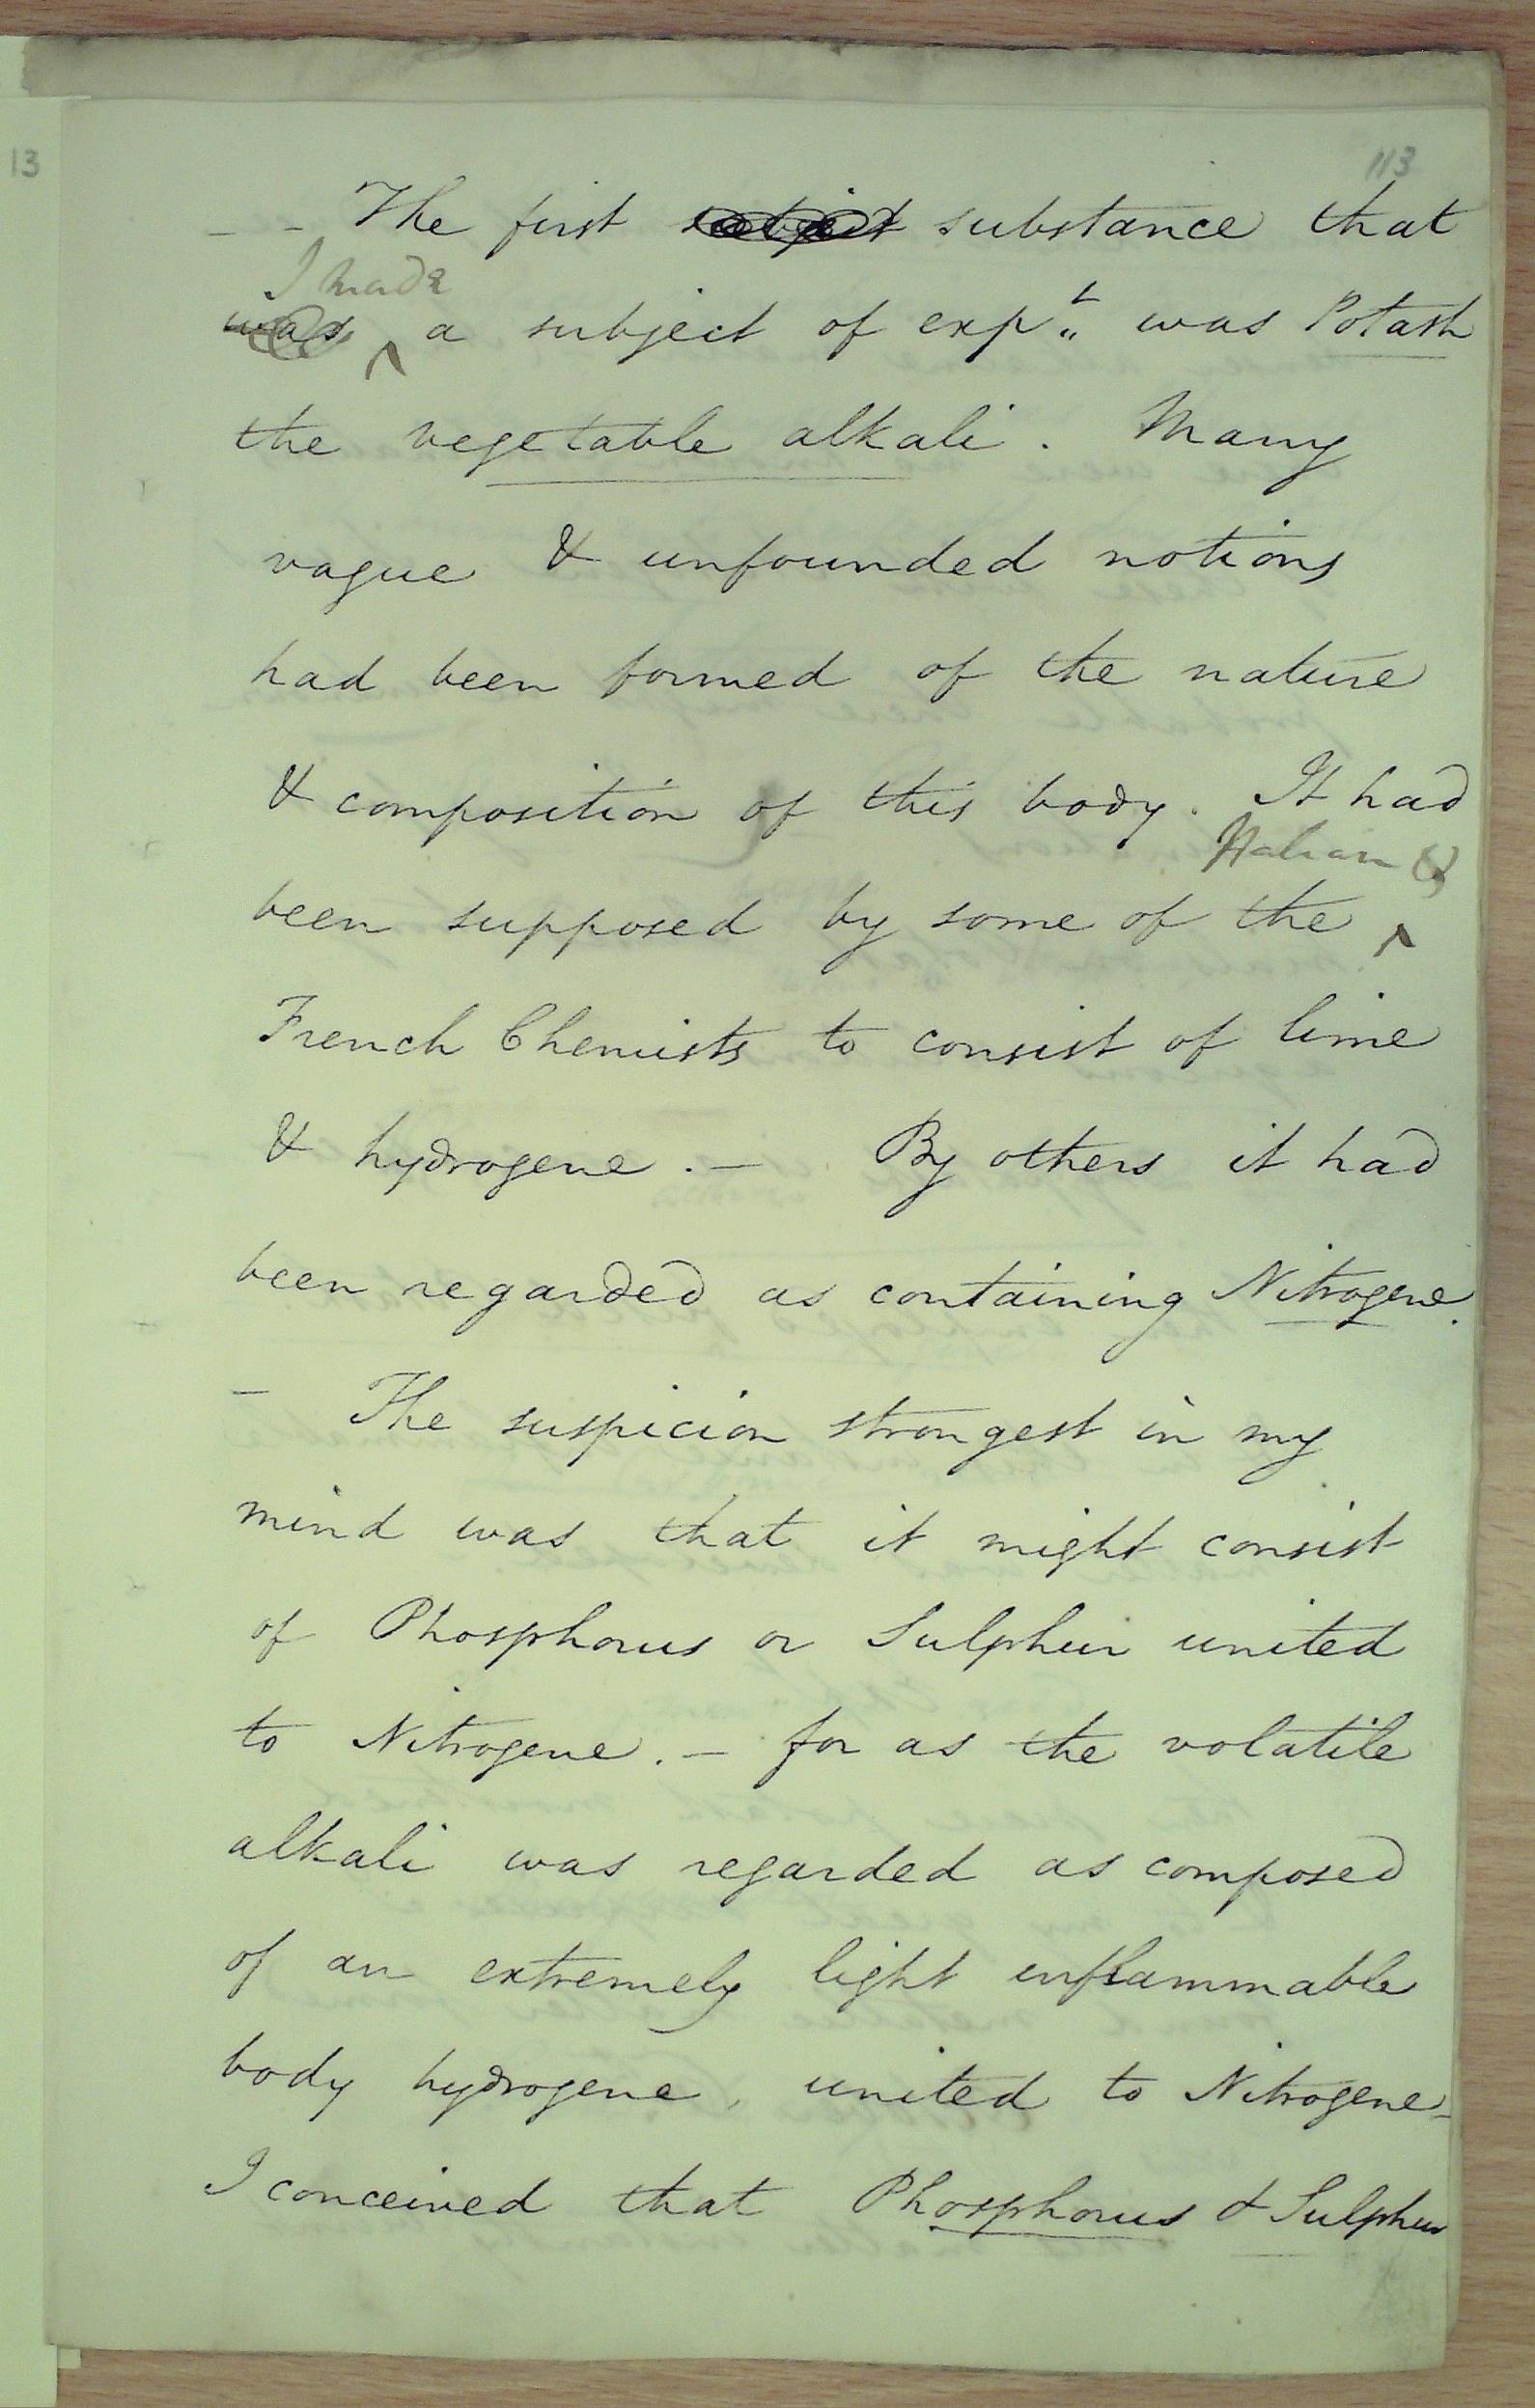 13
113
- - The first subject substance that
I made
was a subject of exp.t was Potash
the vegetable alkali. Many
vague & unfounded notions
had been formed of the nature
& composition of this body. It had
Italian &
been supposed by some of the
French Chemists to consist of lime
& hydrogene. - By others it had
been regarded as containing Nitrogene.
- The suspicion strongest in my
mind was that it might consist
of Phosphorus or Sulphur united
to Nitrogene. - for as the volatile
alkali was regarded as composed
of an extremely light inflammable
body hydrogene, united to Nitrogene -
I conceived that Phosphorus & Sulphur